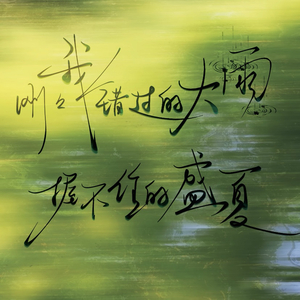 刚才我错过的大雨
握不住的盛夏